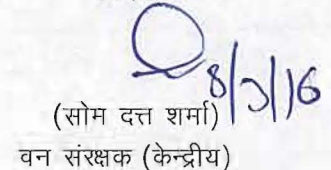 8/3/16
(सोम दत्त शर्मा)
वन संरक्षक (केन्द्रीय)